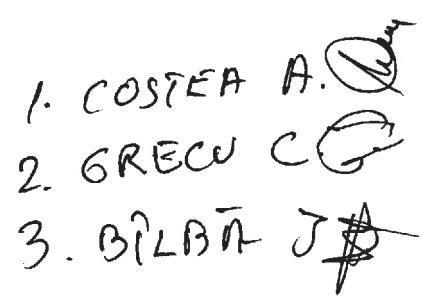 1. COSTEA A.
2. GRECU C
3. BÎLBĂ J